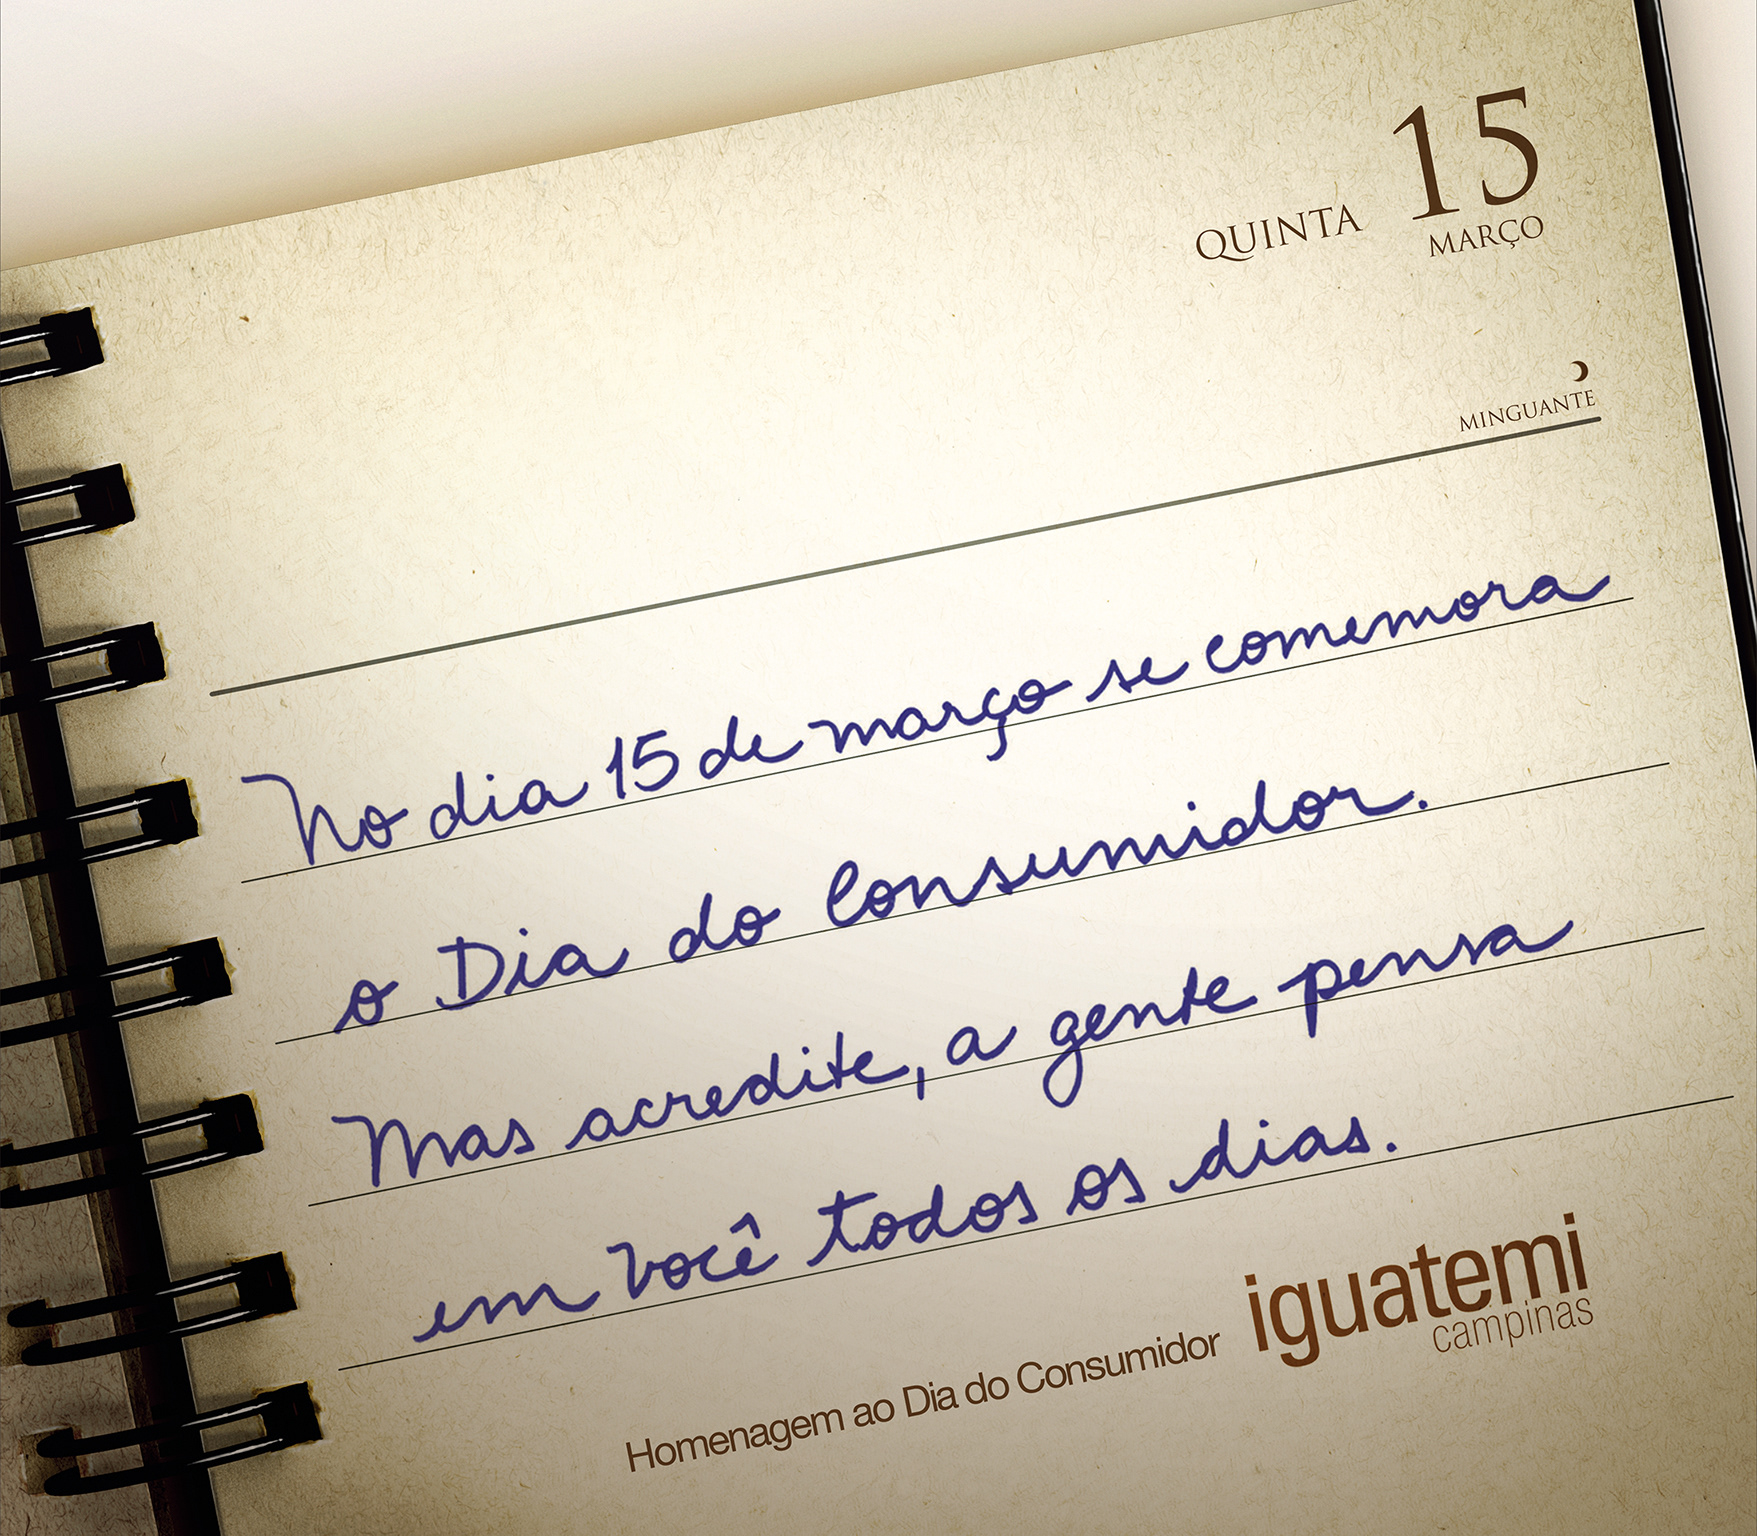 QUINTA 15
MARÇO
MINGUANTE
No dia 15 de março se comemora
o Dia do Consumidor.
Mas acredite, a gente pensa
em você todos os dias.
Homenagem ao Dia do Consumidor iguatemi
campinas